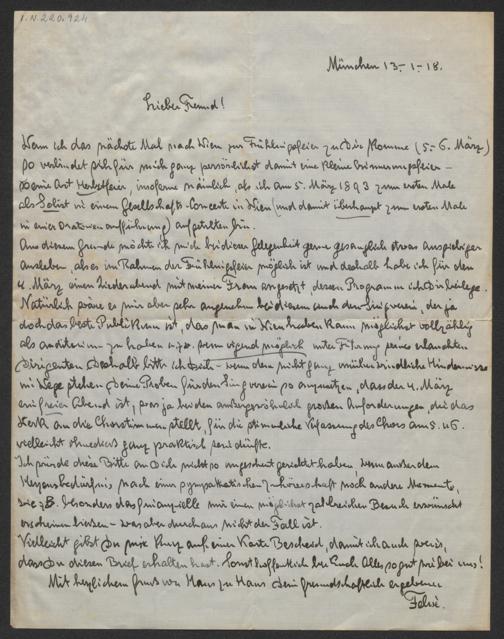 I.N. 220.924
München 13-1-18.
Lieber Freund!
Wenn ich das nächste Mal nach Wien zur Frühlingsfeier zu Dir komme (5.-6. März)
so verbindet sich für mich ganz persönlichst damit eine kleine Erinnerungsfeier -
so eine Art Herbstfeier, insoferne nämlich, als ich am 5. März 1893 zum ersten Male
als Solist in einem Gesellschafts-Concerte in Wien (und damit überhaupt zum ersten Male
in einer Oratorienaufführung) aufgetreten bin.
Aus diesem Grunde möchte ich mich bei dieser Gelegenheit gerne gesanglich etwas ausgiebiger
ausleben als es im Rahmen der Frühlingsfeier möglich ist und deshalb habe ich für den
4. März einen Liederabend mit meiner Frau angesetzt dessen Programm ich Dir beilege.
Natürlich wäre es mir aber sehr angenehm bei diesem auch den Singverein, der ja
doch das beste Publikum ist, das man in Wien haben kann möglichst vollzählig
als auditorium zu haben u. zw. wenn irgend möglich unter Führung seines erlauchten
Dirigenten. Deshalb bitte ich Dich - wenn dem nicht ganz unüberwindliche Hindernisse
im Wege stehen Deine Proben für den Singverein so anzusetzen, dass der 4. März
ein freier Abend ist, was ja bei den außergewöhnlich großen Anforderungen die das
Werk an die Chorstimmen stellt, für die stimmliche Verfassung des Chors am 5. u 6.
vielleicht ohnedies ganz praktisch sein dürfte.
Ich würde diese Bitte an Dich nicht so ungescheut gerichtet haben wenn außer dem
Herzensbedürfnis nach einer sympathischen Zuhörerschaft noch andere Momente,
wie z.B. besonders das finanzielle mir einen möglichst zahlreichen Besuch erwünscht
erscheinen ließen - was aber durchaus nicht der Fall ist.
Vielleicht gibst Du mir kurz auf einer Karte Bescheid, damit ich auch weiss,
dass Du diesen Brief erhalten hast. Sonst hoffentlich bei Euch Alles so gut wie bei uns!
Mit herzlichem Gruß von Haus zu Haus Dein freundschaftlich ergebener
Felix.